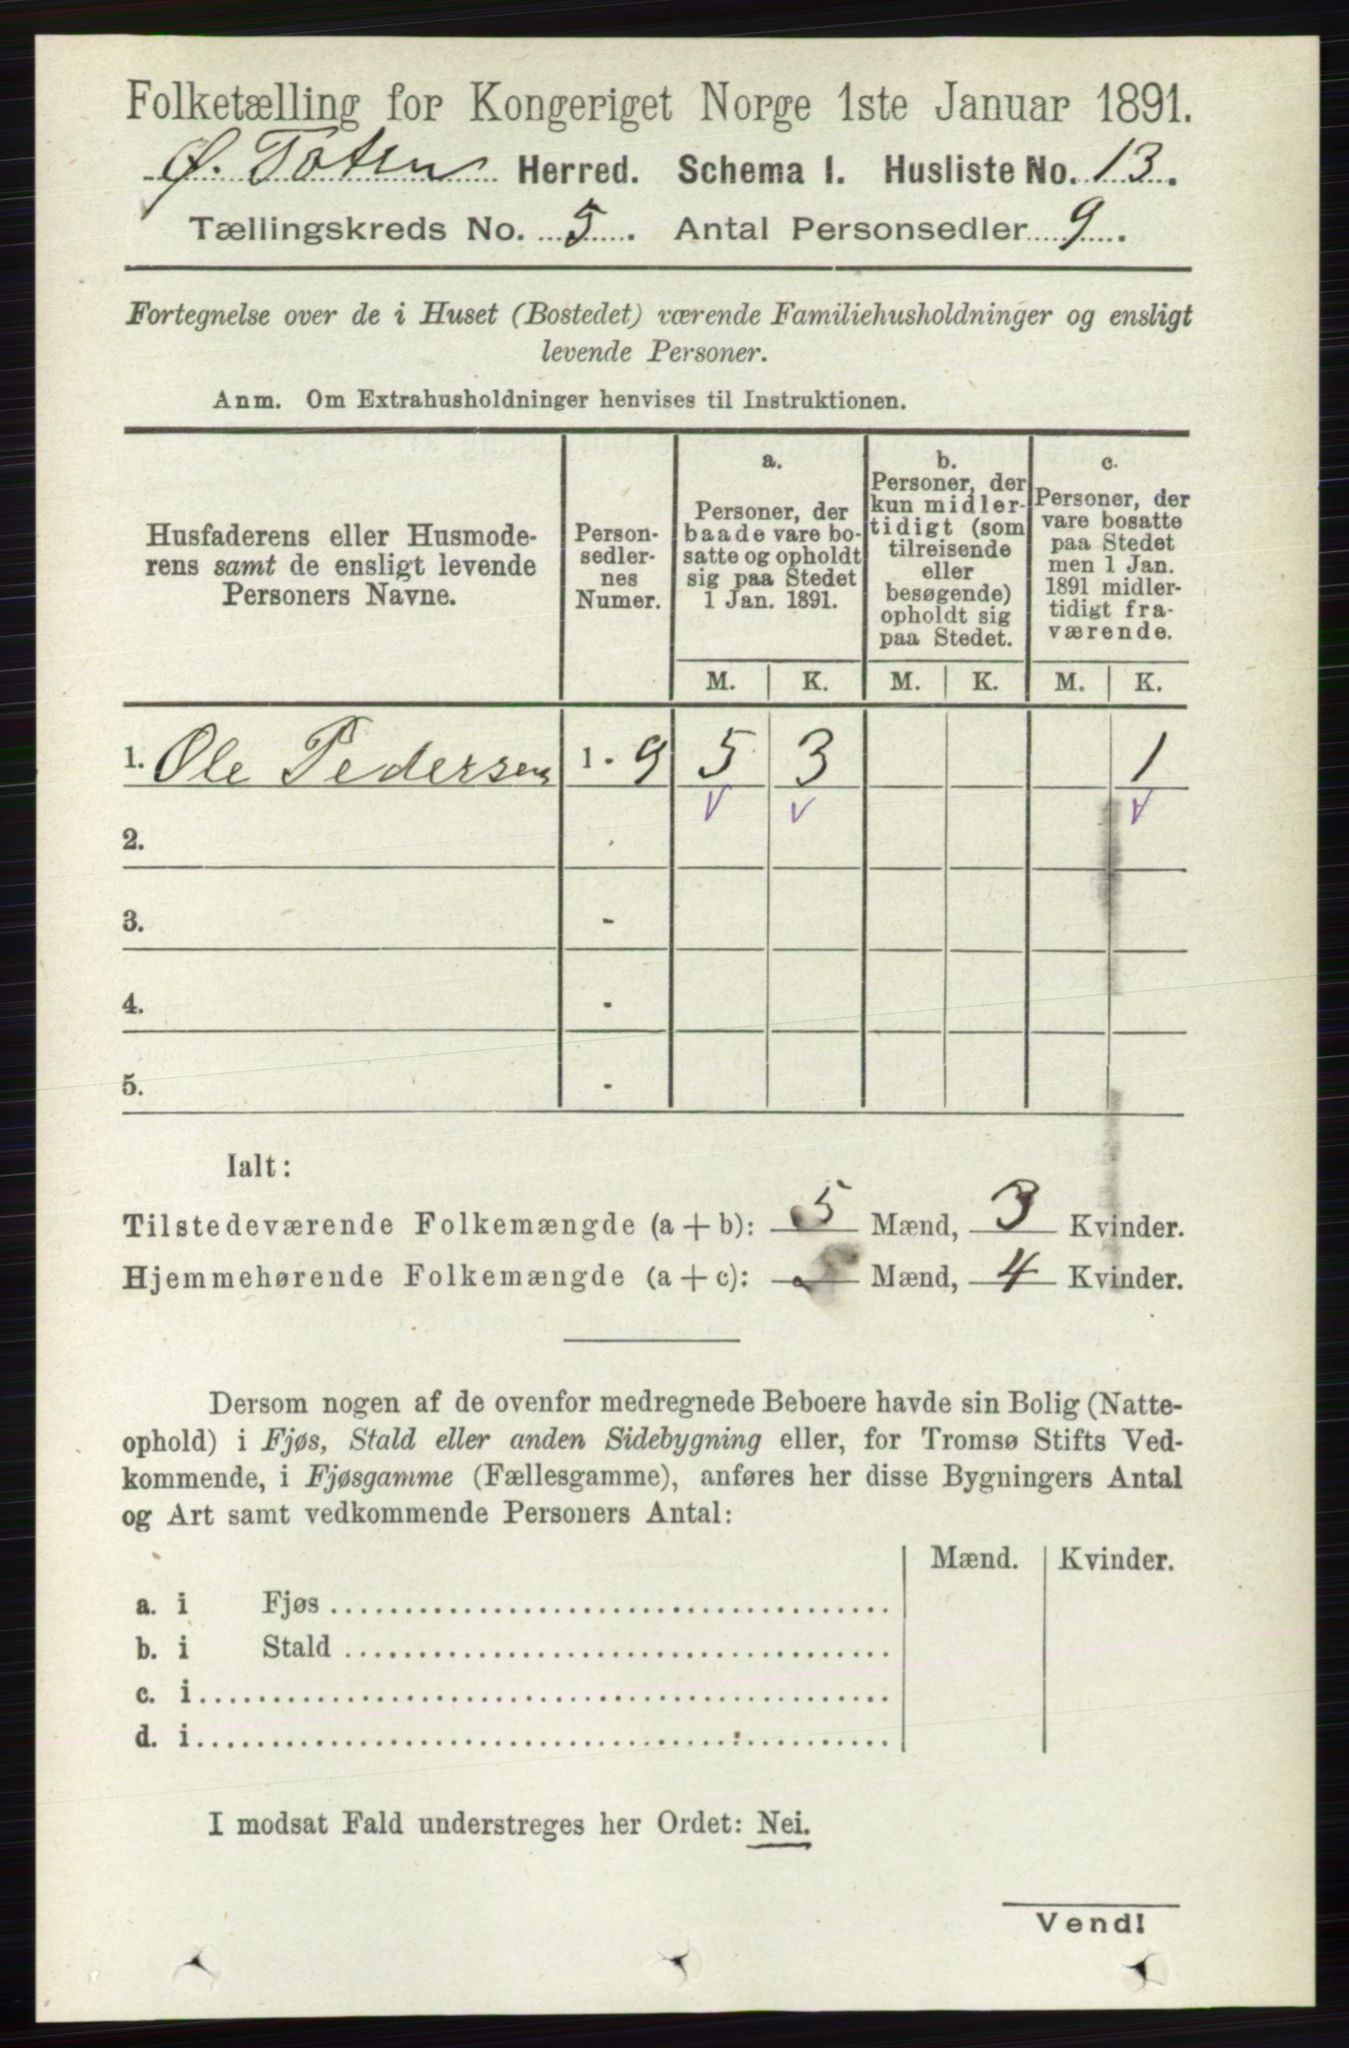 Folketælling for Kongeriget Norge 1ste Januar 1891.
Ø. Toten Herred. Schema I. Husliste No. 13.
Tællingskreds No. 5. Antal Personsedler 9.
Fortegnelse over de i Huset (Bostedet) værende Familiehusholdninger og ensligt
levende Personer.
Anm. Om Extrahusholdninger henvises til Instruktionen.
Husfaderens eller Husmode-
rens samt de ensligt levende
Personers Navne.
Person-
sedler-
nes
Numer.
a.
Personer, der
baade vare bo-
satte og opholdt
sig paa Stedet
1 Jan. 1891.
b.
Personer, der
kun midler-
tidigt (som
tilreisende
eller
besøgende)
opholdt sig
paa Stedet.
c.
Personer, der
vare bosatte
paa Stedet
men 1 Jan.
1891 midler-
tidigt fra-
værende.
M. K. M. K. M. K.
1. Ole Pedersen 1 - 9 5 3 1
2.
3. -
4. -
5. -
Ialt:
Tilstedeværende Folkemængde (a + b): 5 Mænd, 3 Kvinder.
Hjemmehørende Folkemængde (a + c): 5 Mænd, 4 Kvinder.
Dersom nogen af de ovenfor medregnede Beboere havde sin Bolig (Natte-
ophold) i Fjøs, Stald eller anden Sidebygning eller, for Tromsø Stifts Ved-
kommende, i Fjøsgamme (Fællesgamme), anføres her disse Bygningers Antal
og Art samt vedkommende Personers Antal:
Mænd. Kvinder.
a. i Fjøs
b. i Stald
c. i
d. i
I modsat Fald understreges her Ordet: Nei.
Vend!